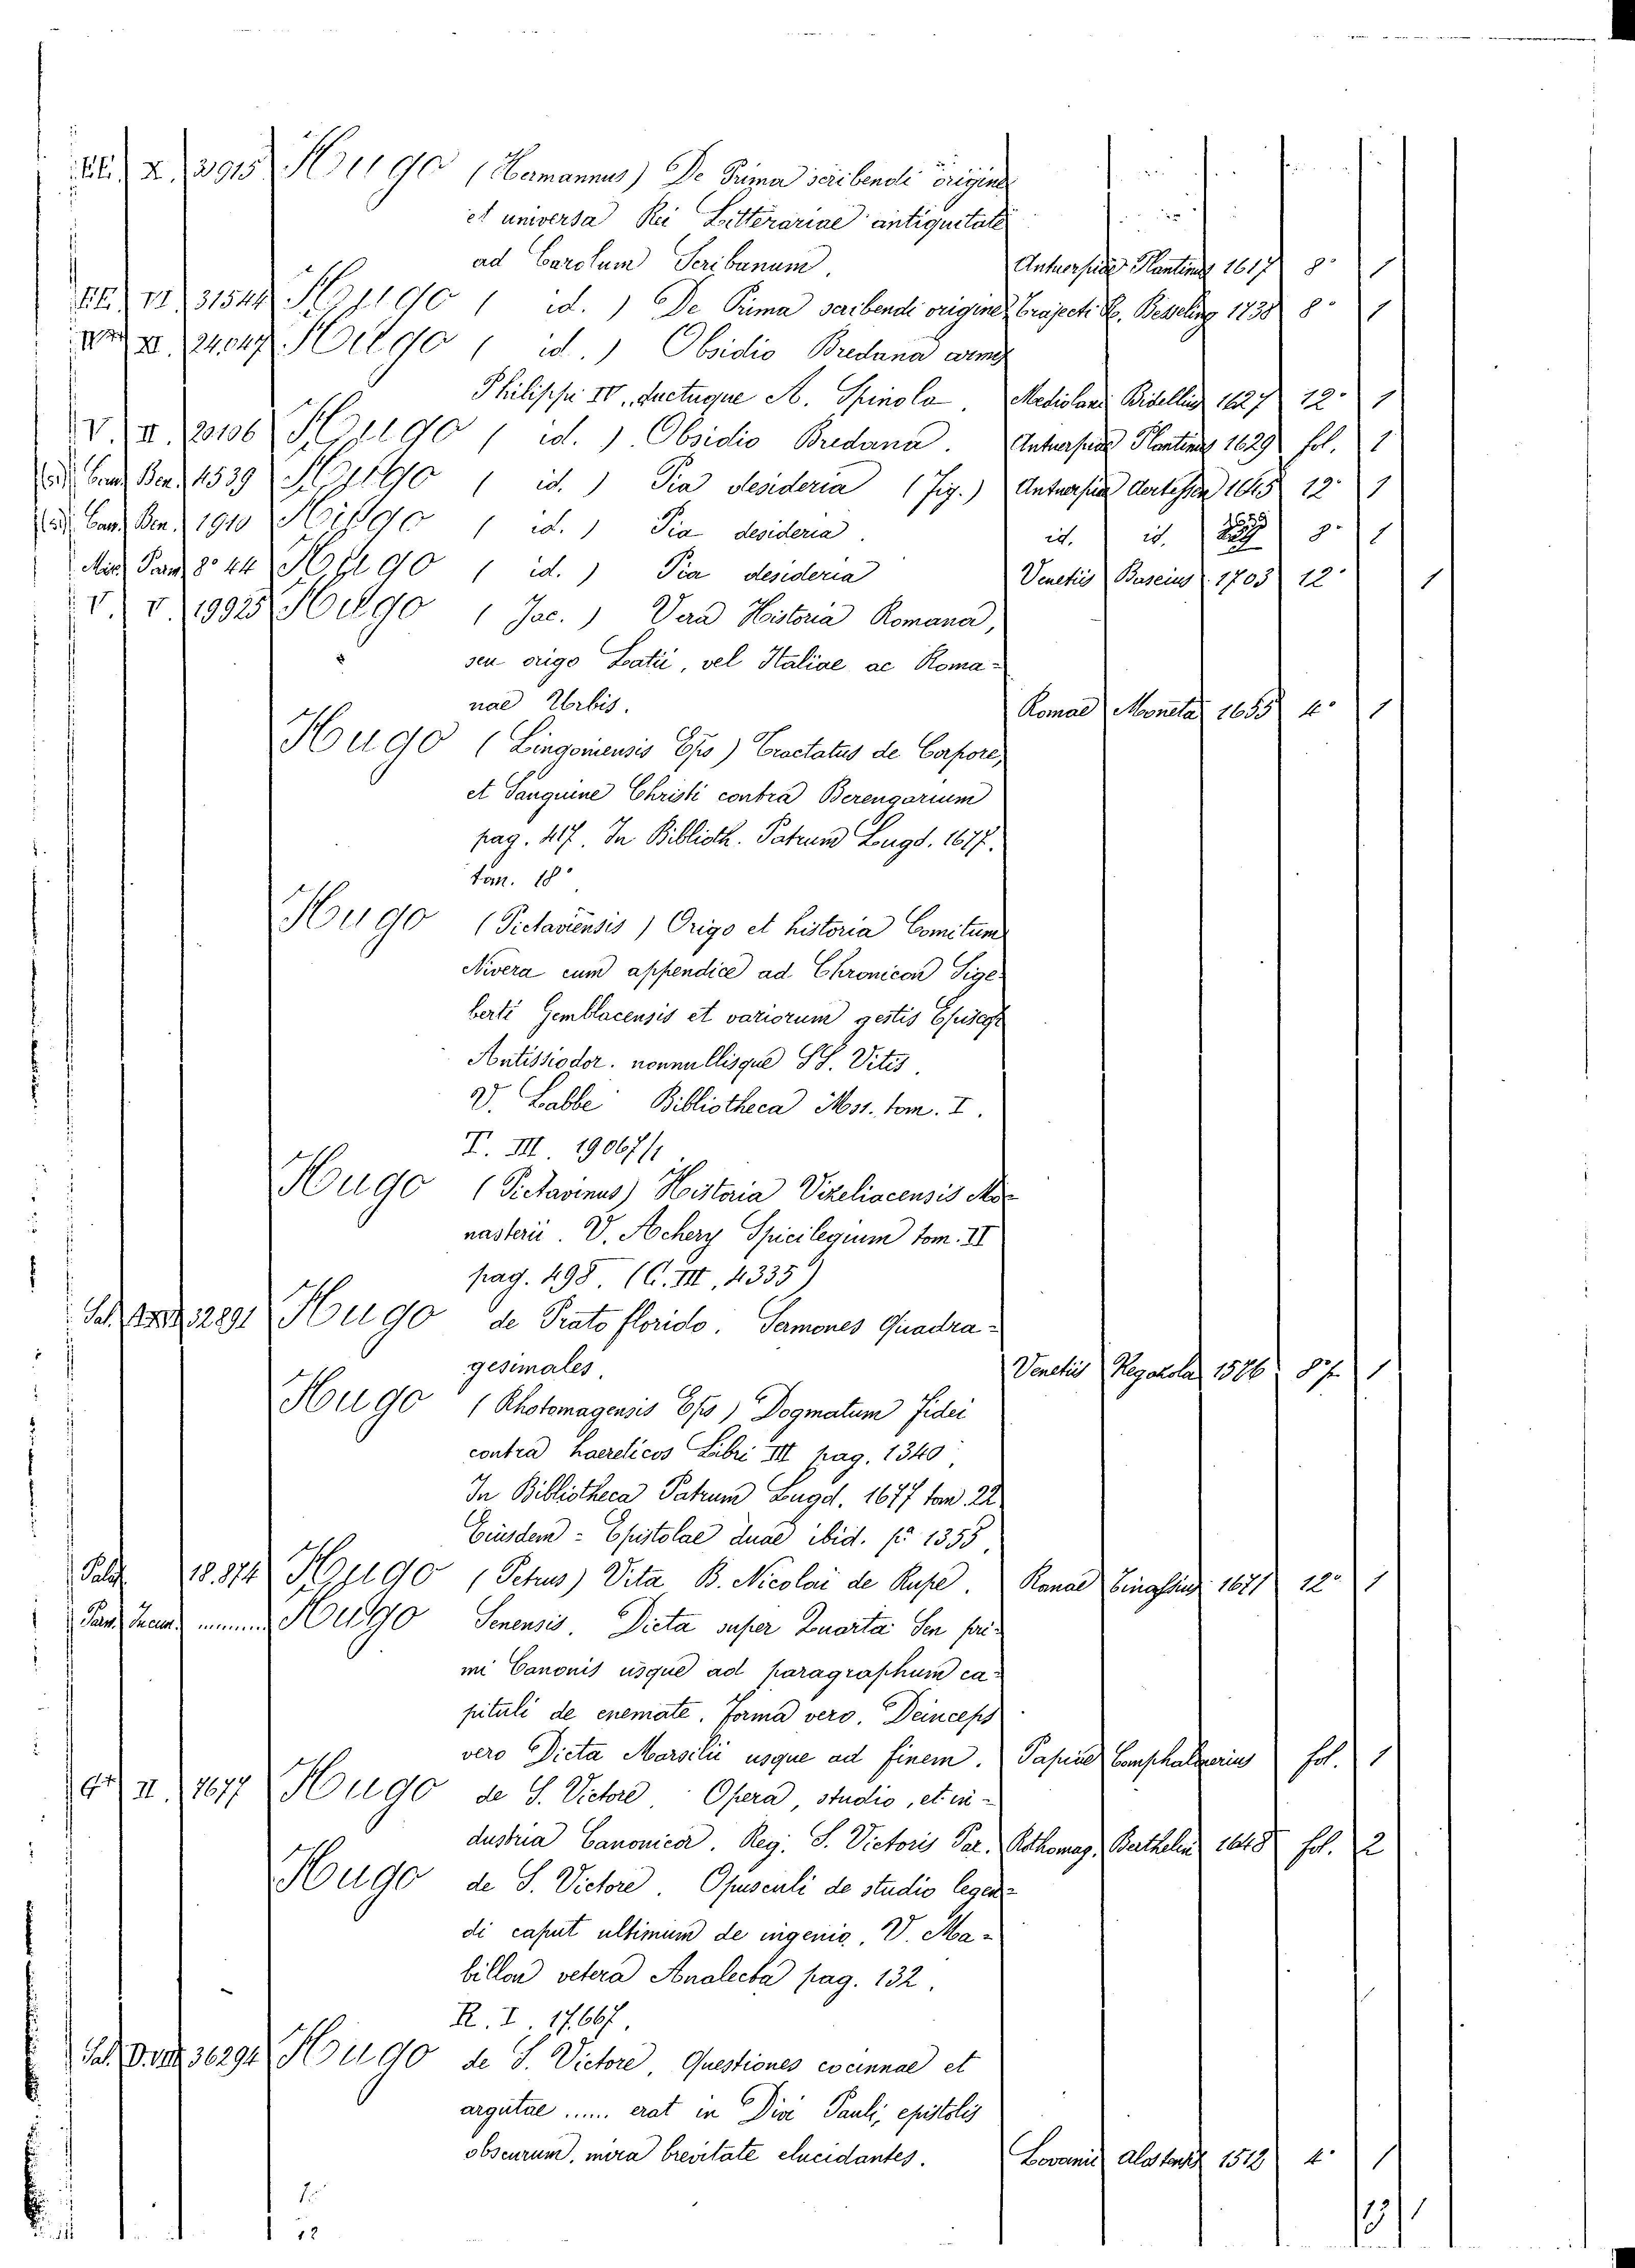 X. 3915 Hugo (Hermannus) De Prima scribendi origine
et universa Rei Litterariae antiquitate
ad Carolum Scribanum. Antuerpiae Plantinus 1617 8° 1
VI 31544 Hugo ( id. ) De Prima scribendi origine Trajecti H. Besseling 1738 8° 1
XI. 24047 Hugo ( id. ) Obsidio Bredana armis
Philippi IV. ductuque A. Spinola. Mediolani Bidellius 1627 12° 1
V. II. 20106 Hugo ( id. ) Obsidio Bredana. Antuerpiae Plantinus 1629 fol. 1
Ben. 4539 Hugo ( id. ) Pia desideria (Fig.) Antuerpiae Aertessen 1645 12° 1
Ben. 1910 Hugo ( id. ) Pia desideria. id. id. 1659 8° 1
8° 44 Hugo ( id. ) Pia desideria Venetiis Baseius 1703 12° 1
V. V. 19925 Hugo ( Jac. ) Vera Historia Romana,
seu origo Latii, vel Italiae ac Roma-
nae Urbis. Romae Moneta 1655 4° 1
Hugo (Lingoniensis Eps) Tractatus de Corpore,
et Sanguine Christi contra Berengarium
pag. 417. In Biblioth. Patrum Lugd. 1677.
tom. 18°
Hugo (Pictaviensis) Origo et historia Comitum
Nivera cum appendice ad Chronicon Sige-
berti Gemblacensis et variorum gestis Episcop
Antissiodor. nonnullisque SS. Vitis.
V. Labbe Bibliotheca Mss. tom. I.
T. III. 19067/1
Hugo (Pictavinus) Historia Vizeliacensis Mo-
nasterii. V. Achery Spicilegium tom. II
pag. 498. (C. III, 4335)
32891 Hugo de Prato florido. Sermones Quadra-
gesimales. Venetiis Regazola 1576 8° 1
Hugo (Rhotomagensis Eps) Dogmatum Fidei
contra haereticos Libri III pag. 1340.
In Bibliotheca Patrum Lugd. 1677 tom 22
Eiusdem = Epistolae duae ibid. p° 1355.
Palat 18.874 Hugo (Petrus) Vita B. Nicolai de Rupe. Romae 1671 12° 1
Hugo Senensis. Dicta super Quarta Sen pri-
mi Canonis usque ad paragraphum ca-
pituli de enemate. Forma vero. Deinceps
vero Dicta Marsilii usque ad finem. Papiae fol. 1
II. 7677 Hugo de S. Victore. Opera, studio, et in-
dustria Canonicor. Reg. S. Victoris Par. Rothomag. Berthelin 1648 fol. 2
Hugo de S. Victore. Opusculi de studio legen-
di caput ultimum de ingenio. V. Ma-
billon vetera Analecta pag. 132.
R. I. 17.667.
36294 Hugo de S. Victore, Questiones cocinnae et
argutae ...... erat in Divi Pauli, epistolis
obscurum, mira brevitate elucidantes. Lovanii 1512 4° 1
13 1
12